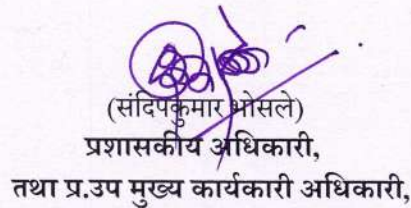 (संदिपकुमार भोसले)
प्रशासकीय अधिकारी,
तथा प्र.उप मुख्य कार्यकारी अधिकारी,